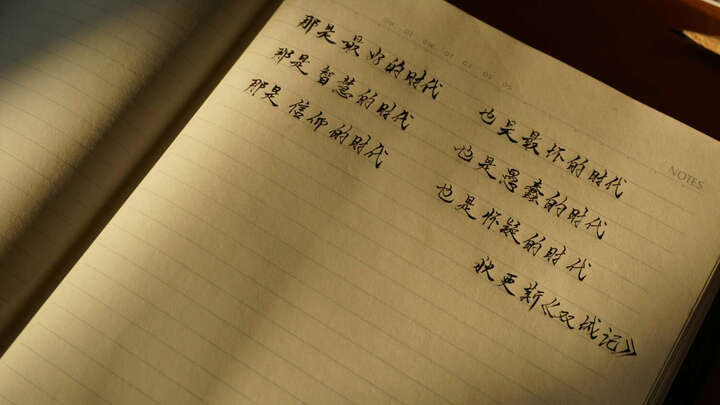 那是最好的时代
也是最坏的时代
那是智慧的时代
也是愚蠢的时代
那是信仰的时代
也是怀疑的时代
狄更斯《双城记》
NOTES